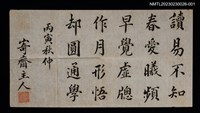 讀易不知
春愛曦頻
早覺虛牕
作月形悟
却圓通學
丙寅秋仲
寄齋主人
NMTL20230230026-001